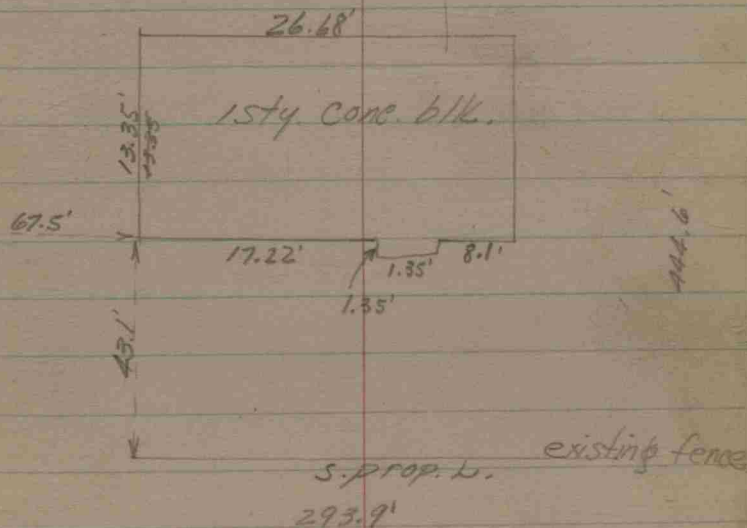 26.68'
1 sty. conc. blk.
13.35'
13.35
67.5'
17.22'
1.35'
8.1'
1.35'
444.6'
43.1'
existing fence
S. prop. L.
293.9'